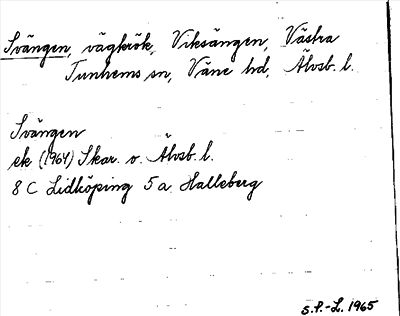 Svängen, vägkrök, Viksängen, Västra
Tunhems sn, Väne hd, Älvsb. l.
Svängen
ek (1964) Skar. o. Älvsb. l.
8 C Lidköping 5 a Halleberg
S.P.-L. 1965